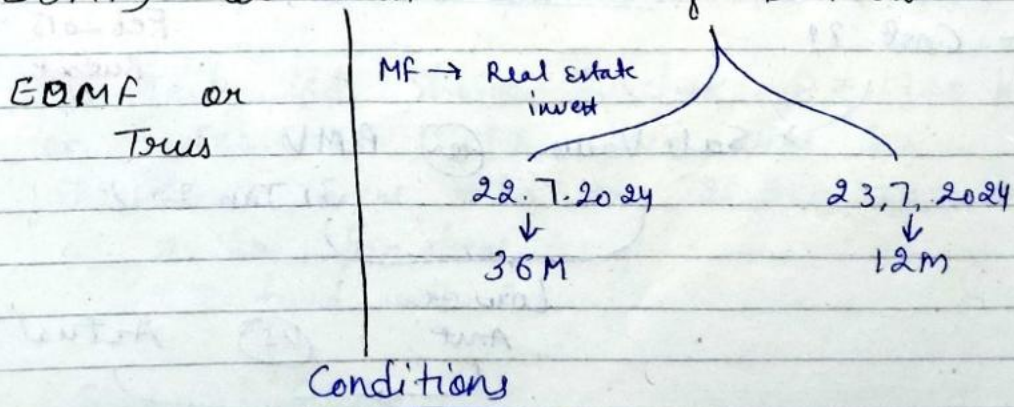 EOMF or
Trus
MF → Real Estate
invest
22.7.2024
23,7,2024
↓
↓
36M
12m
Conditions